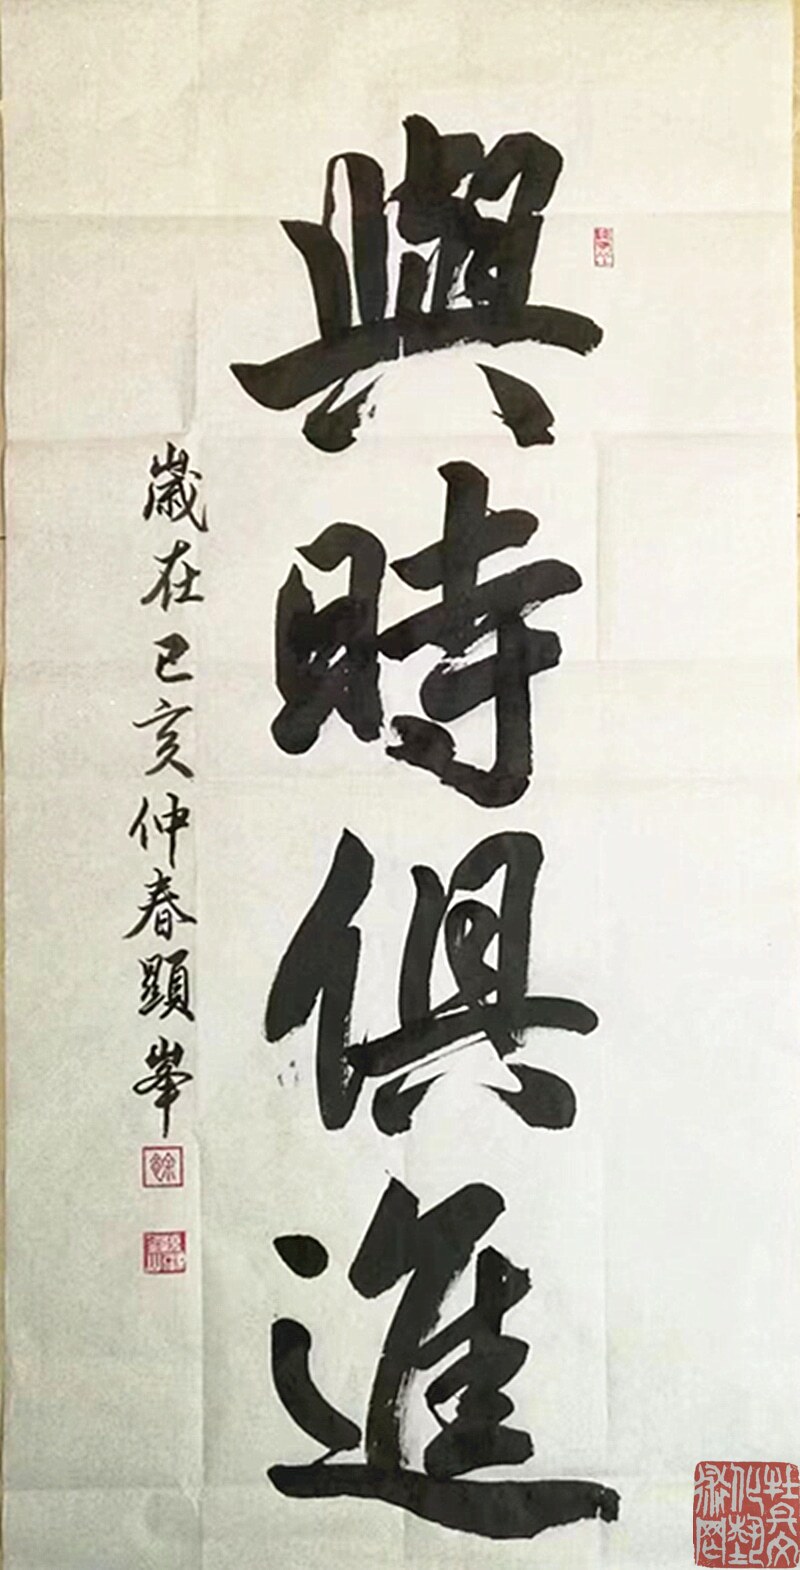 與時俱進
歲在己亥仲春顯峯